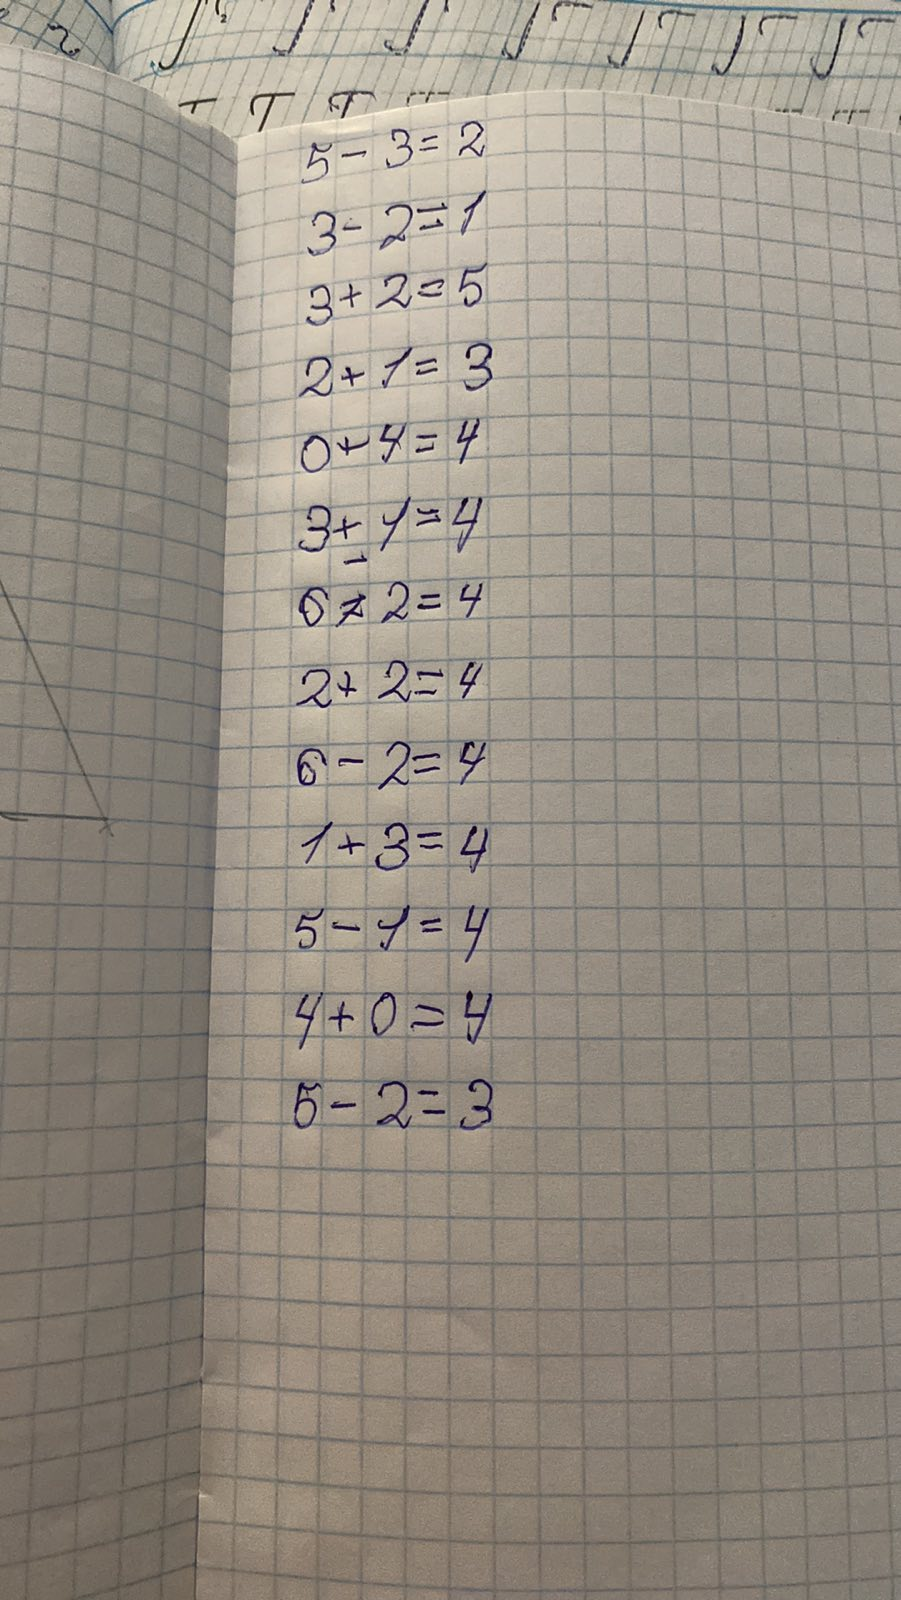 T T T
5 - 3 = 2
3 - 2 = 1
3 + 2 = 5
2 + 1 = 3
0 + 4 = 4
3 + 1 = 4
6 - 2 = 4
2 + 2 = 4
6 - 2 = 4
1 + 3 = 4
5 - 1 = 4
4 + 0 = 4
5 - 2 = 3